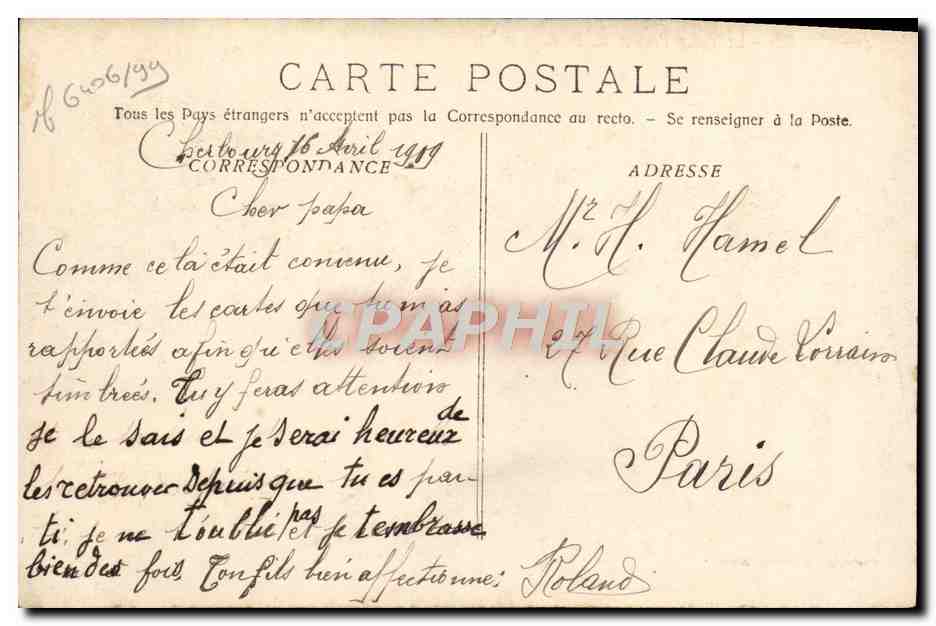 6406/99
CARTE POSTALE
Tous les Pays étrangers n'acceptent pas la Correspondance au recto. - Se renseigner à la Poste.
Cherbourg 16 Avril 1909
CORRESPONDANCE
Cher papa
Comme cela était convenu, je
t'envoie les cartes que tu m'as
rapportées afin qu'elles soient
timbrées. Tu y feras attention
je le sais et je serai heureux de
les retrouver Depuis que tu es par-
ti, je ne t'oublie pas et je t'embrasse
bien des fois. Ton fils bien affectionné:
Roland
ADRESSE
Mr. H. Hamel
27 Rue Claude Lorrain
Paris
CPAPHIL